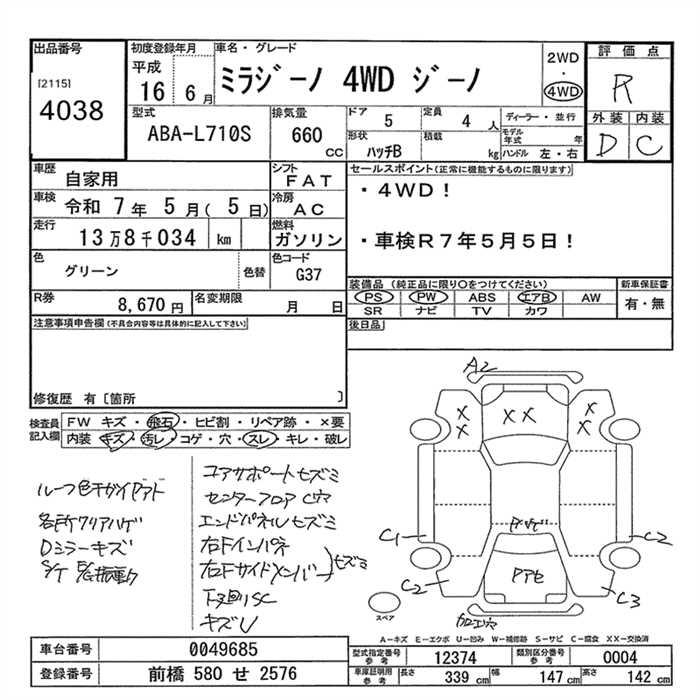 出品番号
[2115]
4038
初度登録年月
平成
16 6月
車名・グレード
ミラジーノ 4WD ジーノ
2WD
・
4WD
評価点
R
外装 内装
D C
型式
ABA-L710S
排気量
660
CC
ドア 5
定員 4 人
ディーラー・並行
形状 ハッチB
積載 kg
モデル年式 年
ハンドル 左・右
車歴 自家用
シフト FAT
車検 令和 7年 5月( 5日)
冷房 AC
走行 13万8千034 km
燃料 ガソリン
色 グリーン
色替
色コード G37
R券 8,670円
名変期限 月 日
セールスポイント(正常に機能するものに限ります)
・4WD!
・車検R7年5月5日!
装備品(純正品に限り○をつけてください)
新車保証書
PS PW ABS エアB AW
有・無
SR ナビ TV カワ
後日品
注意事項申告欄(不具合内容等は具体的に記入して下さい)
修復歴 有〔箇所 〕
検査員記入欄
FW キズ・飛石・ヒビ割・リペア跡・×要
内装 キズ・汚レ・コゲ・穴・スレ・キレ・破レ
各所クリアハゲ
Dミラーキズ
コアサポートセズミ
センターフロア
エンドパネルセズミ
右Fインパネ
右Fサイドメンバー セズミ
下廻りSC
キズU
A2
X X
X X
X X
C1
C2
C2
C3
スペア
A-キズ E-エクボ U-凹み W-補修跡 S-サビ C-腐食 XX-交換済
車台番号 0049685
登録番号 前橋 580 せ 2576
型式指定番号 参考 12374
類別区分番号 参考 0004
車庫証明用 参考 長さ 339 cm 幅 147 cm 高さ 142 cm